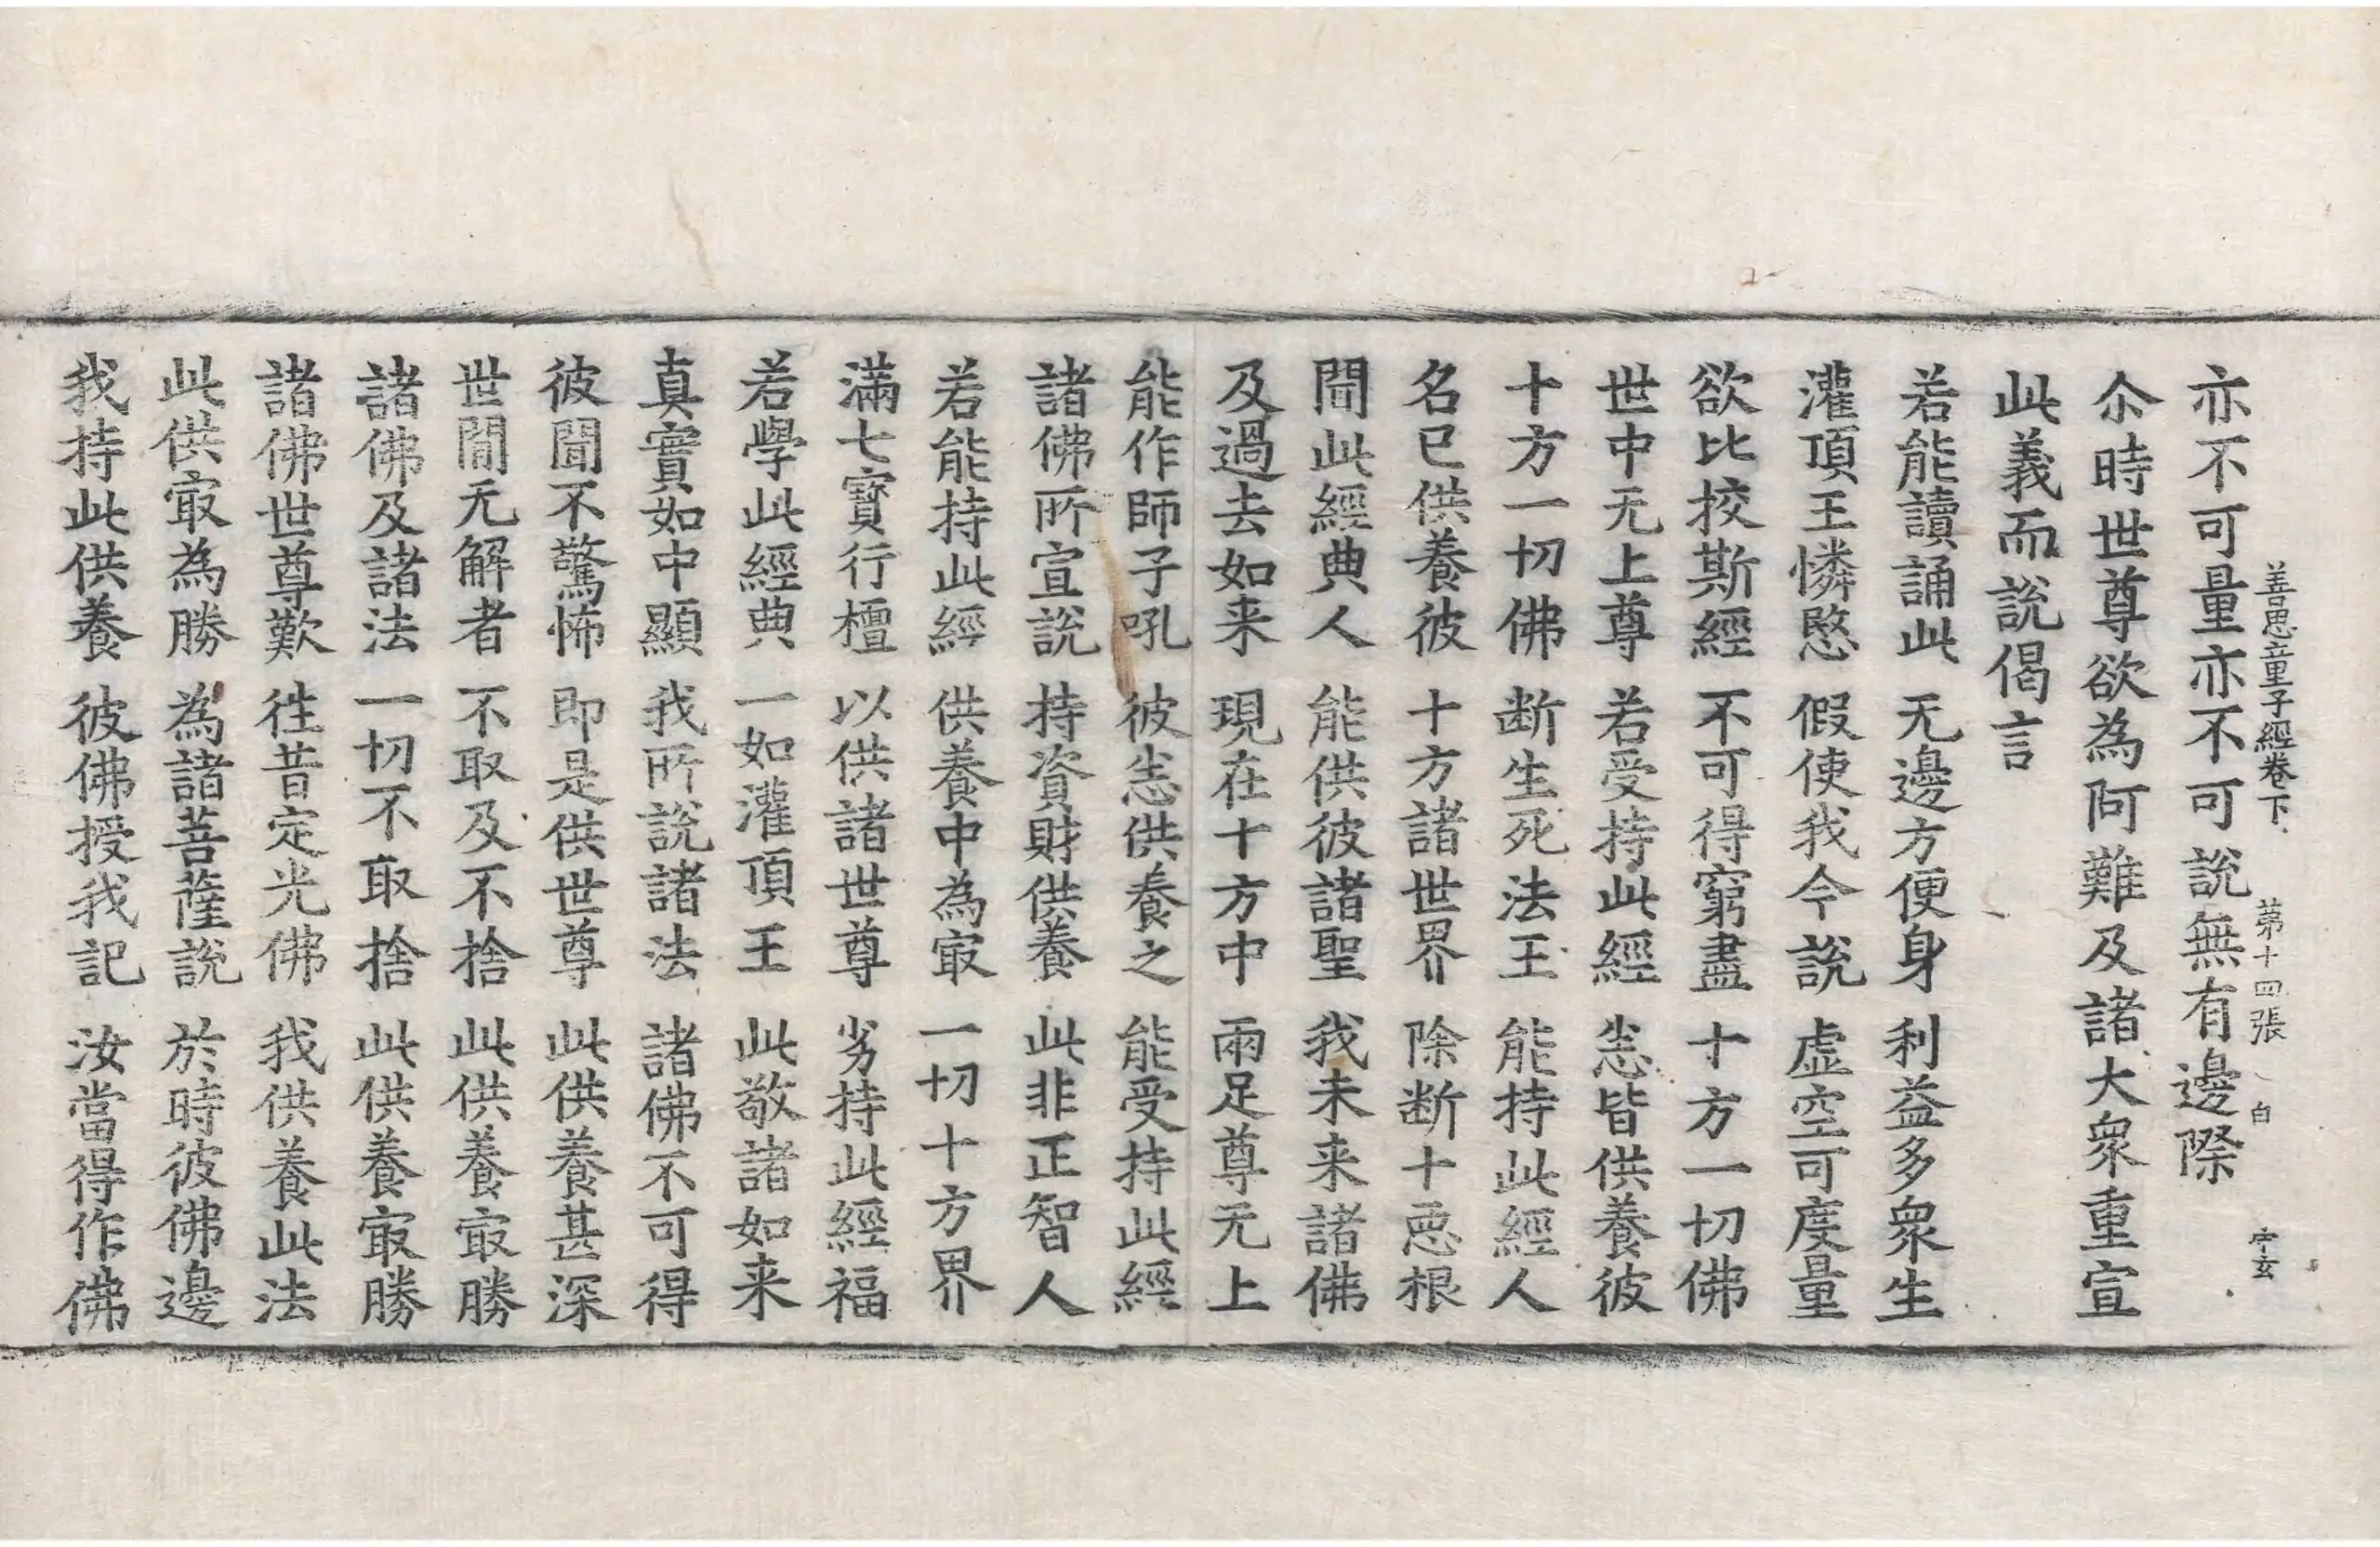 善思童子經卷下 苐十四張 白 字玄
亦不可量亦不可說無有邊際
尒時世尊欲為阿難及諸大衆重宣
此義而說偈言
若能讀誦此 无邊方便身 利益多衆生
灌頂王憐愍 假使我今說 虛空可度量
欲比挍斯經 不可得窮盡 十方一切佛
世中无上尊 若受持此經 悉皆供養彼
十方一切佛 断生死法王 能持此經人
名已供養彼 十方諸世界 除断十惡根
聞此經典人 能供彼諸聖 我未来諸佛
及過去如来 現在十方中 兩足尊无上
能作師子吼 彼悉供養之 能受持此經
諸佛所宣說 持資財供養 此非正智人
若能持此經 供養中為㝡 一切十方界
滿七寶行檀 以供諸世尊 劣持此經福
若學此經典 一如灌頂王 此敬諸如来
真實如中顯 我所說諸法 諸佛不可得
彼聞不驚怖 即是供世尊 此供養甚深
世間无解者 不取及不捨 此供養㝡勝
諸佛及諸法 一切不取捨 此供養㝡勝
諸佛世尊歎 徃昔定光佛 我供養此法
此供㝡為勝 為諸菩薩說 於時彼佛邊
我持此供養 彼佛授我記 汝當得作佛